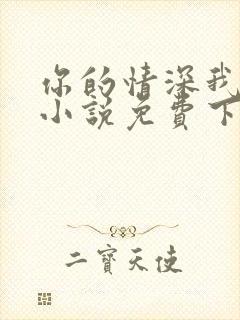 你的情深我
小说免费下
二寶天使